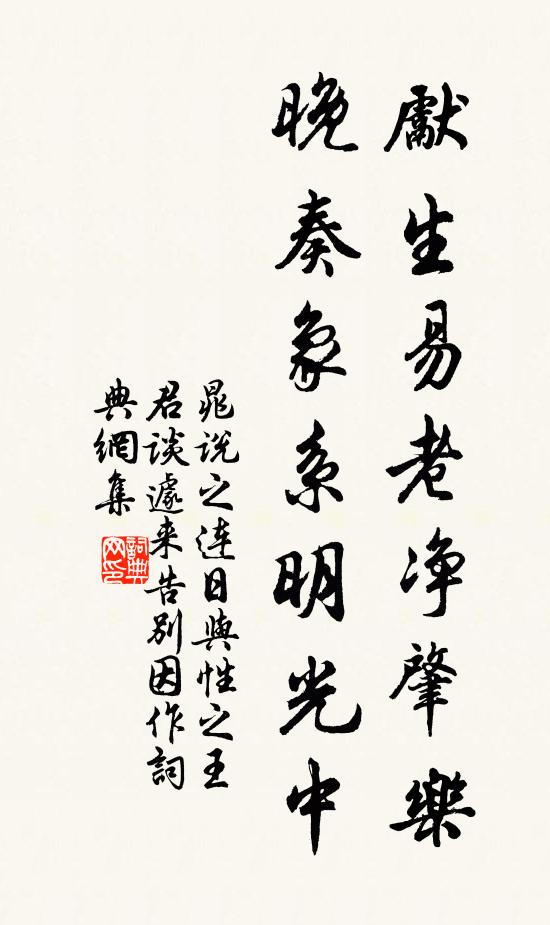 獻生易老净肇樂
晚奏象系明光中
晁說之连日與性之王
君谈遽来告別因作詞
典網集
詞典
网印